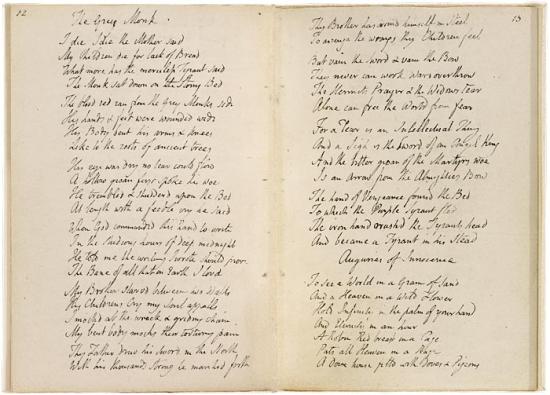 12
The Grey Monk
I die I die the Mother said
My Children die for lack of Bread
What more has the merciless Tyrant Said
The Monk sat down on the Stony Bed
The blood red ran from the Grey Monks side
His hands & feet were wounded wide
His Body bent his arms & knees
Like to the roots of ancient trees
His eye was dry no tear could flow
A hollow groan first spoke his woe
He trembled & shudderd upon the Bed
At length with a feeble cry he said
When God commanded this hand to write
In the studious hours of deep midnight
He told me the writing I wrote should prove
The Bane of all that on Earth I lovd
My Brother starvd between two Walls
His Childrens Cry my Soul appalls
I mockd at the wrack & griding chain
My bent body mocks their torturing pain
Thy Father drew his sword in the North
With his thousands strong he marched forth
13
Thy Brother has armd himself in Steel
To avenge the wrongs thy Children feel
But vain the Sword & vain the Bow
They never can work Wars overthrow
The Hermits Prayer & the Widows tear
Alone can free the World from fear
For a Tear is an Intellectual Thing
And a Sigh is the Sword of an Angel King
And the bitter groan of the Martyrs woe
Is an Arrow from the Almighties Bow
The hand of Vengeance found the Bed
To which the Purple Tyrant fled
The iron hand crushd the Tyrants head
And became a Tyrant in his Stead
Auguries of Innocence
To see a World in a Grain of Sand
And a Heaven in a Wild Flower
Hold Infinity in the palm of your hand
And Eternity in an hour
A Robin Red breast in a Cage
Puts all Heaven in a Rage
A Dove house filld with Doves & Pigeons